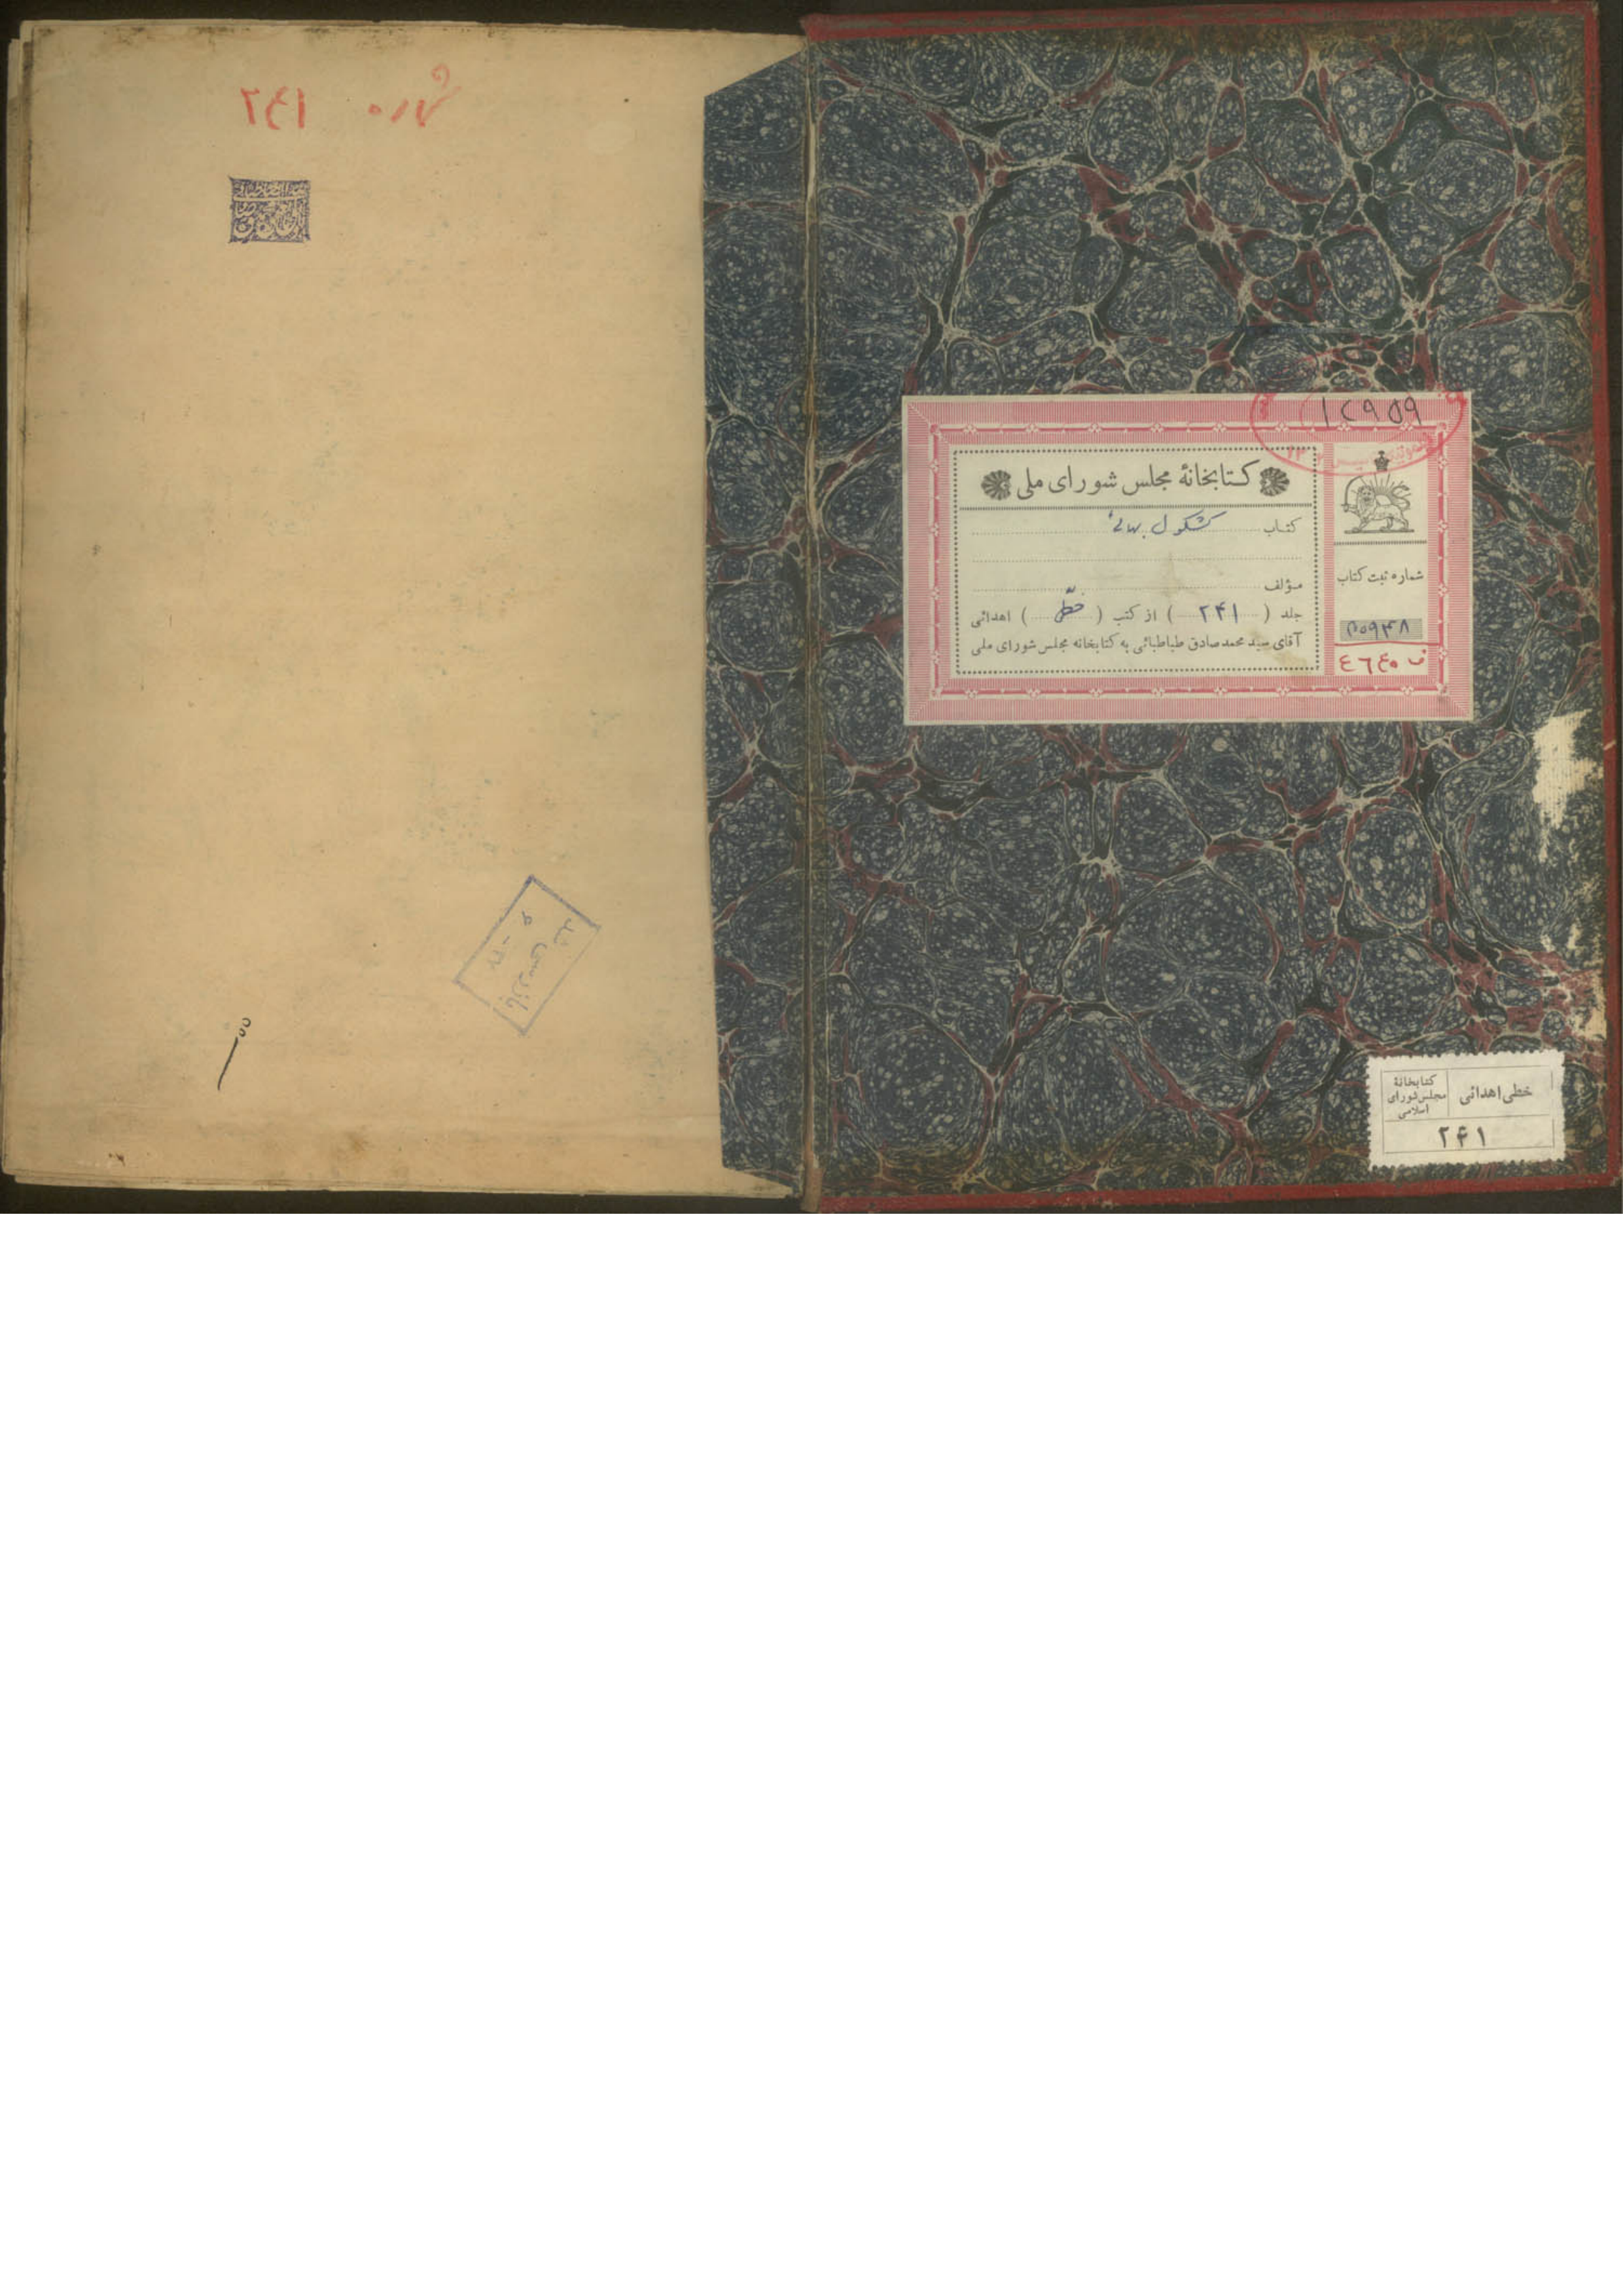 ۱۲۹۵۹
کتابخانهٔ مجلس شورای ملی
کتاب کشکول بهائی
مؤلف
جلد ( ۲۴۱ ) از کتب ( خطی ) اهدائی
آقای سید محمد صادق طباطبائی به کتابخانه مجلس شورای ملی
شماره ثبت کتاب
ف ٤٦٤٠
خطی اهدائی
کتابخانهٔ
مجلس شورای
اسلامی
۲۴۱
شماره ۲۴۱
بازرسی شد